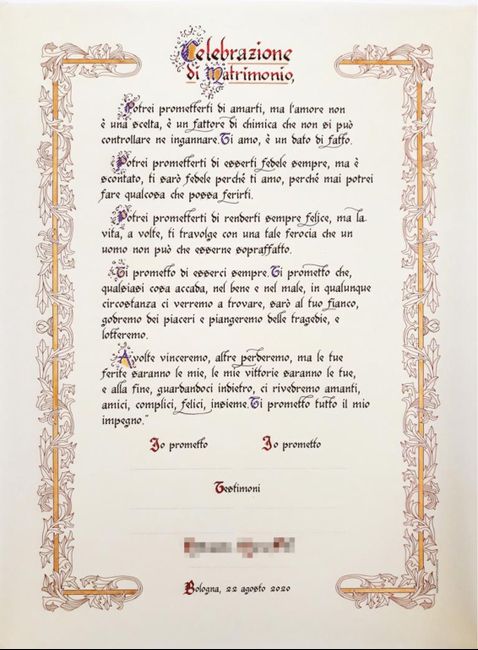 Celebrazione
di Matrimonio,
Potrei prometterti di amarti, ma l'amore non
è una scelta, è un fattore di chimica che non si può
controllare ne ingannare. Ti amo, è un dato di fatto.
Potrei prometterti di esserti fedele sempre, ma è
scontato, ti sarò fedele perché ti amo, perché mai potrei
fare qualcosa che possa ferirti.
Potrei prometterti di renderti sempre felice, ma la
vita, a volte, ti travolge con una tale ferocia che un
uomo non può che esserne sopraffatto.
Ti prometto di esserci sempre. Ti prometto che,
qualsiasi cosa accada, nel bene e nel male, in qualunque
circostanza ci verremo a trovare, sarò al tuo fianco,
godremo dei piaceri e piangeremo delle tragedie, e
lotteremo.
A volte vinceremo, altre perderemo, ma le tue
ferite saranno le mie, le mie vittorie saranno le tue,
e alla fine, guardandoci indietro, ci rivedremo amanti,
amici, complici, felici, insieme. Ti prometto tutto il mio
impegno."
Io prometto Io prometto
Testimoni
Bologna, 22 agosto 2020